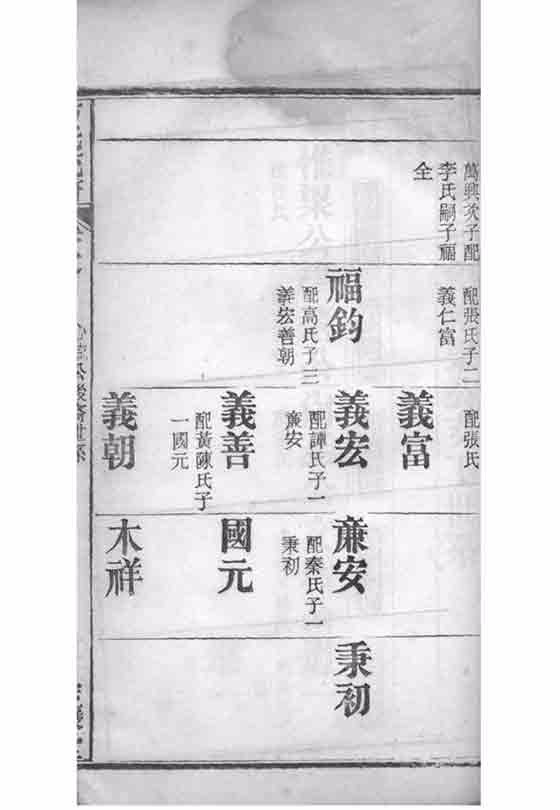 萬興次子配
李氏嗣子福
全
配張氏子二
義仁富
福鈞
配高氏子三
義宏善朝
配張氏
義富
義宏
配譚氏子一
廉安
義善
配黃陳氏子
一國元
義朝
廉安
配秦氏子一
秉初
國元
木祥
秉初